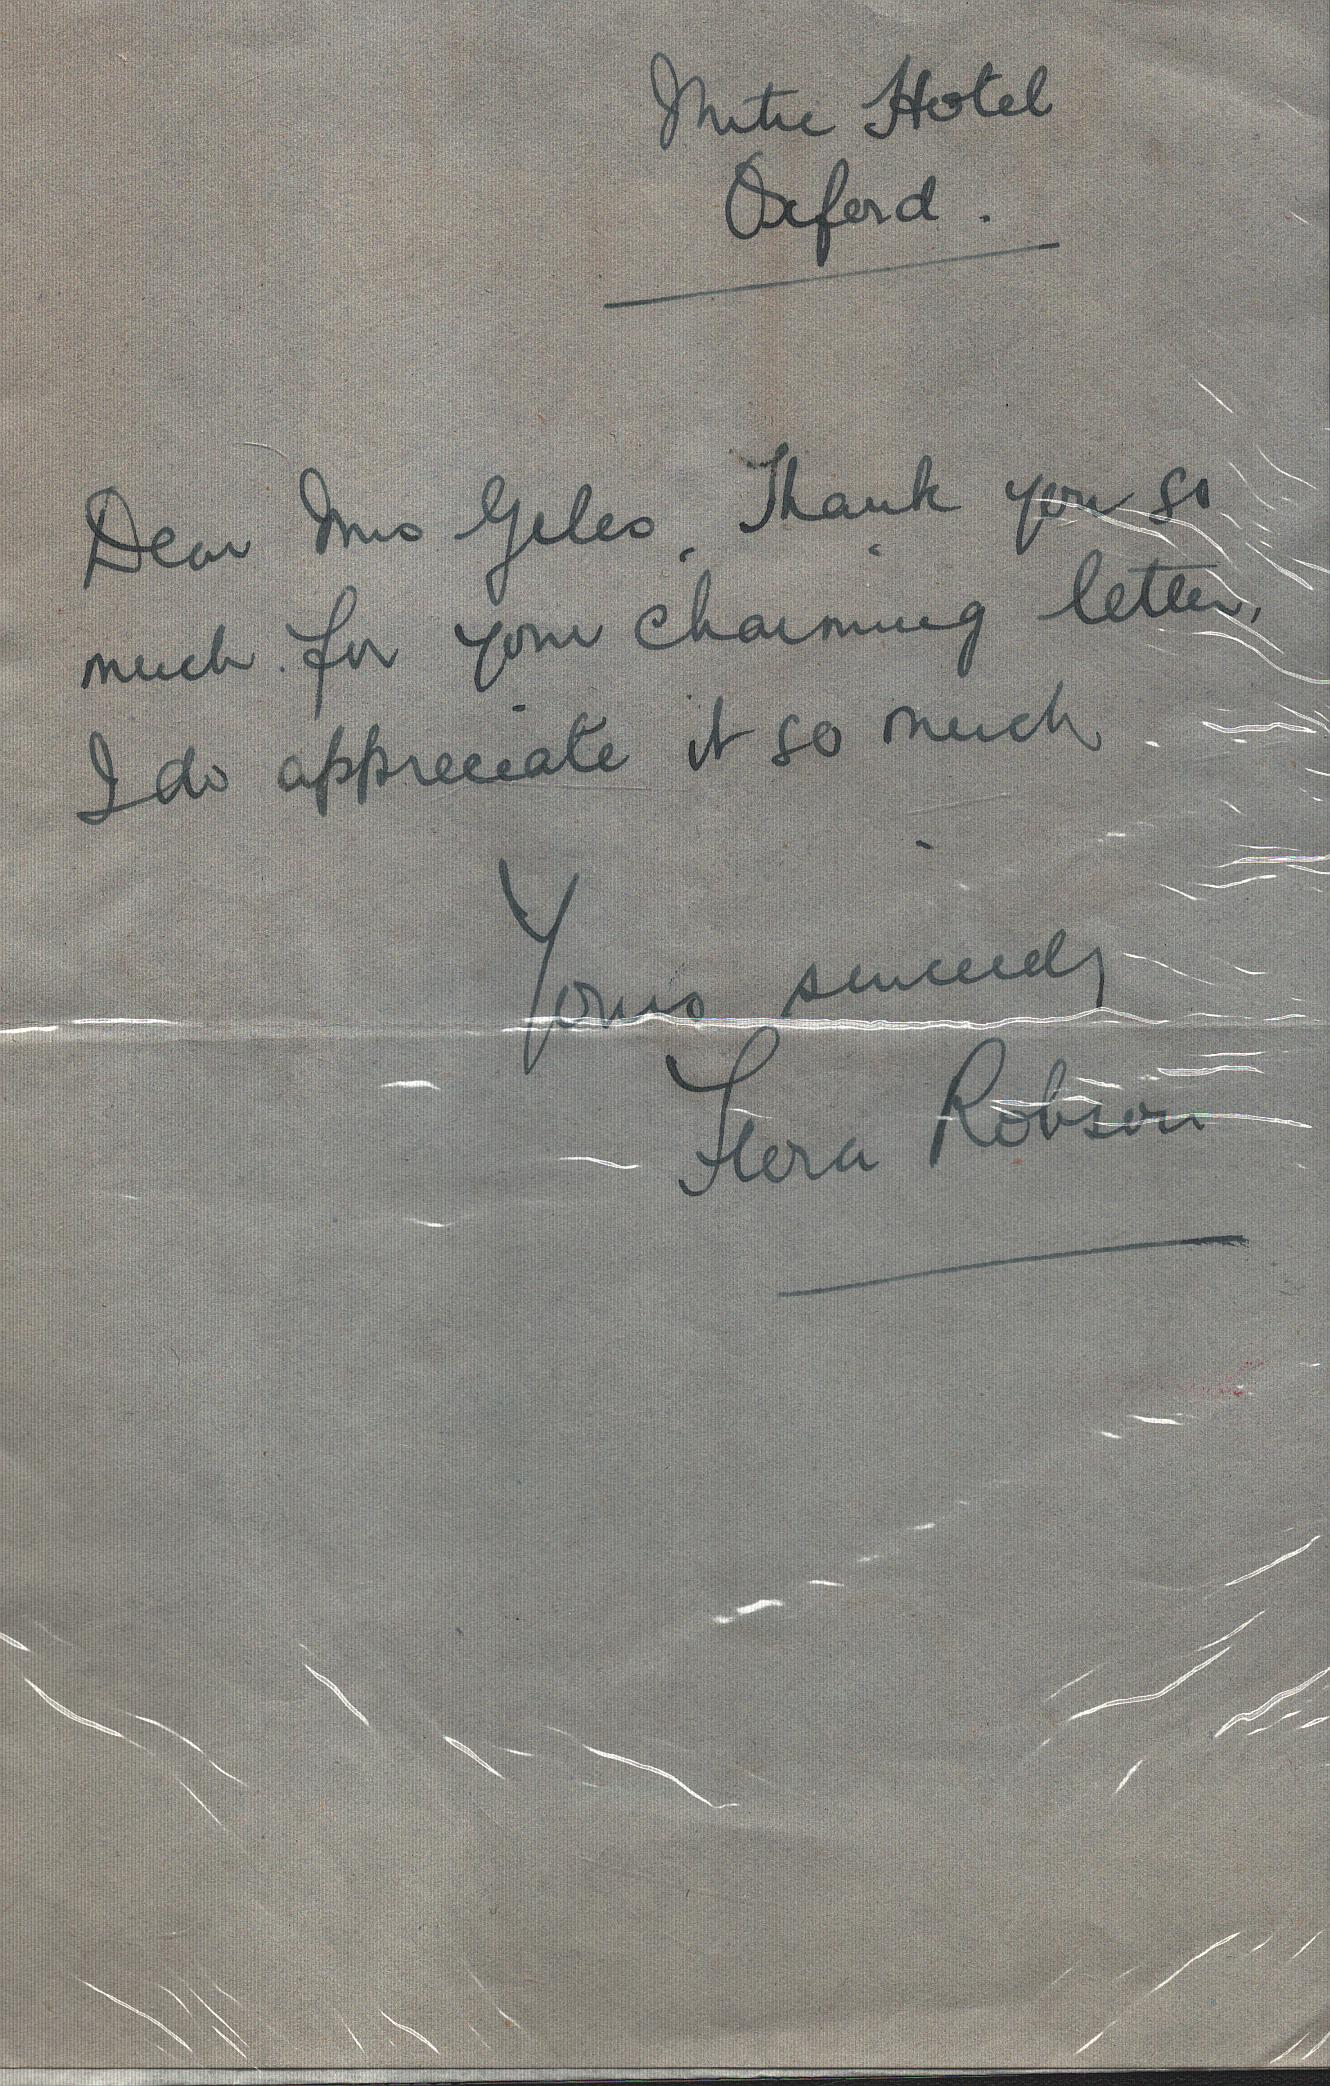 Mitre Hotel
Oxford.
Dear Mrs Giles, Thank you so
much for your charming letter,
I do appreciate it so much
Yours sincerely
Flora Robson